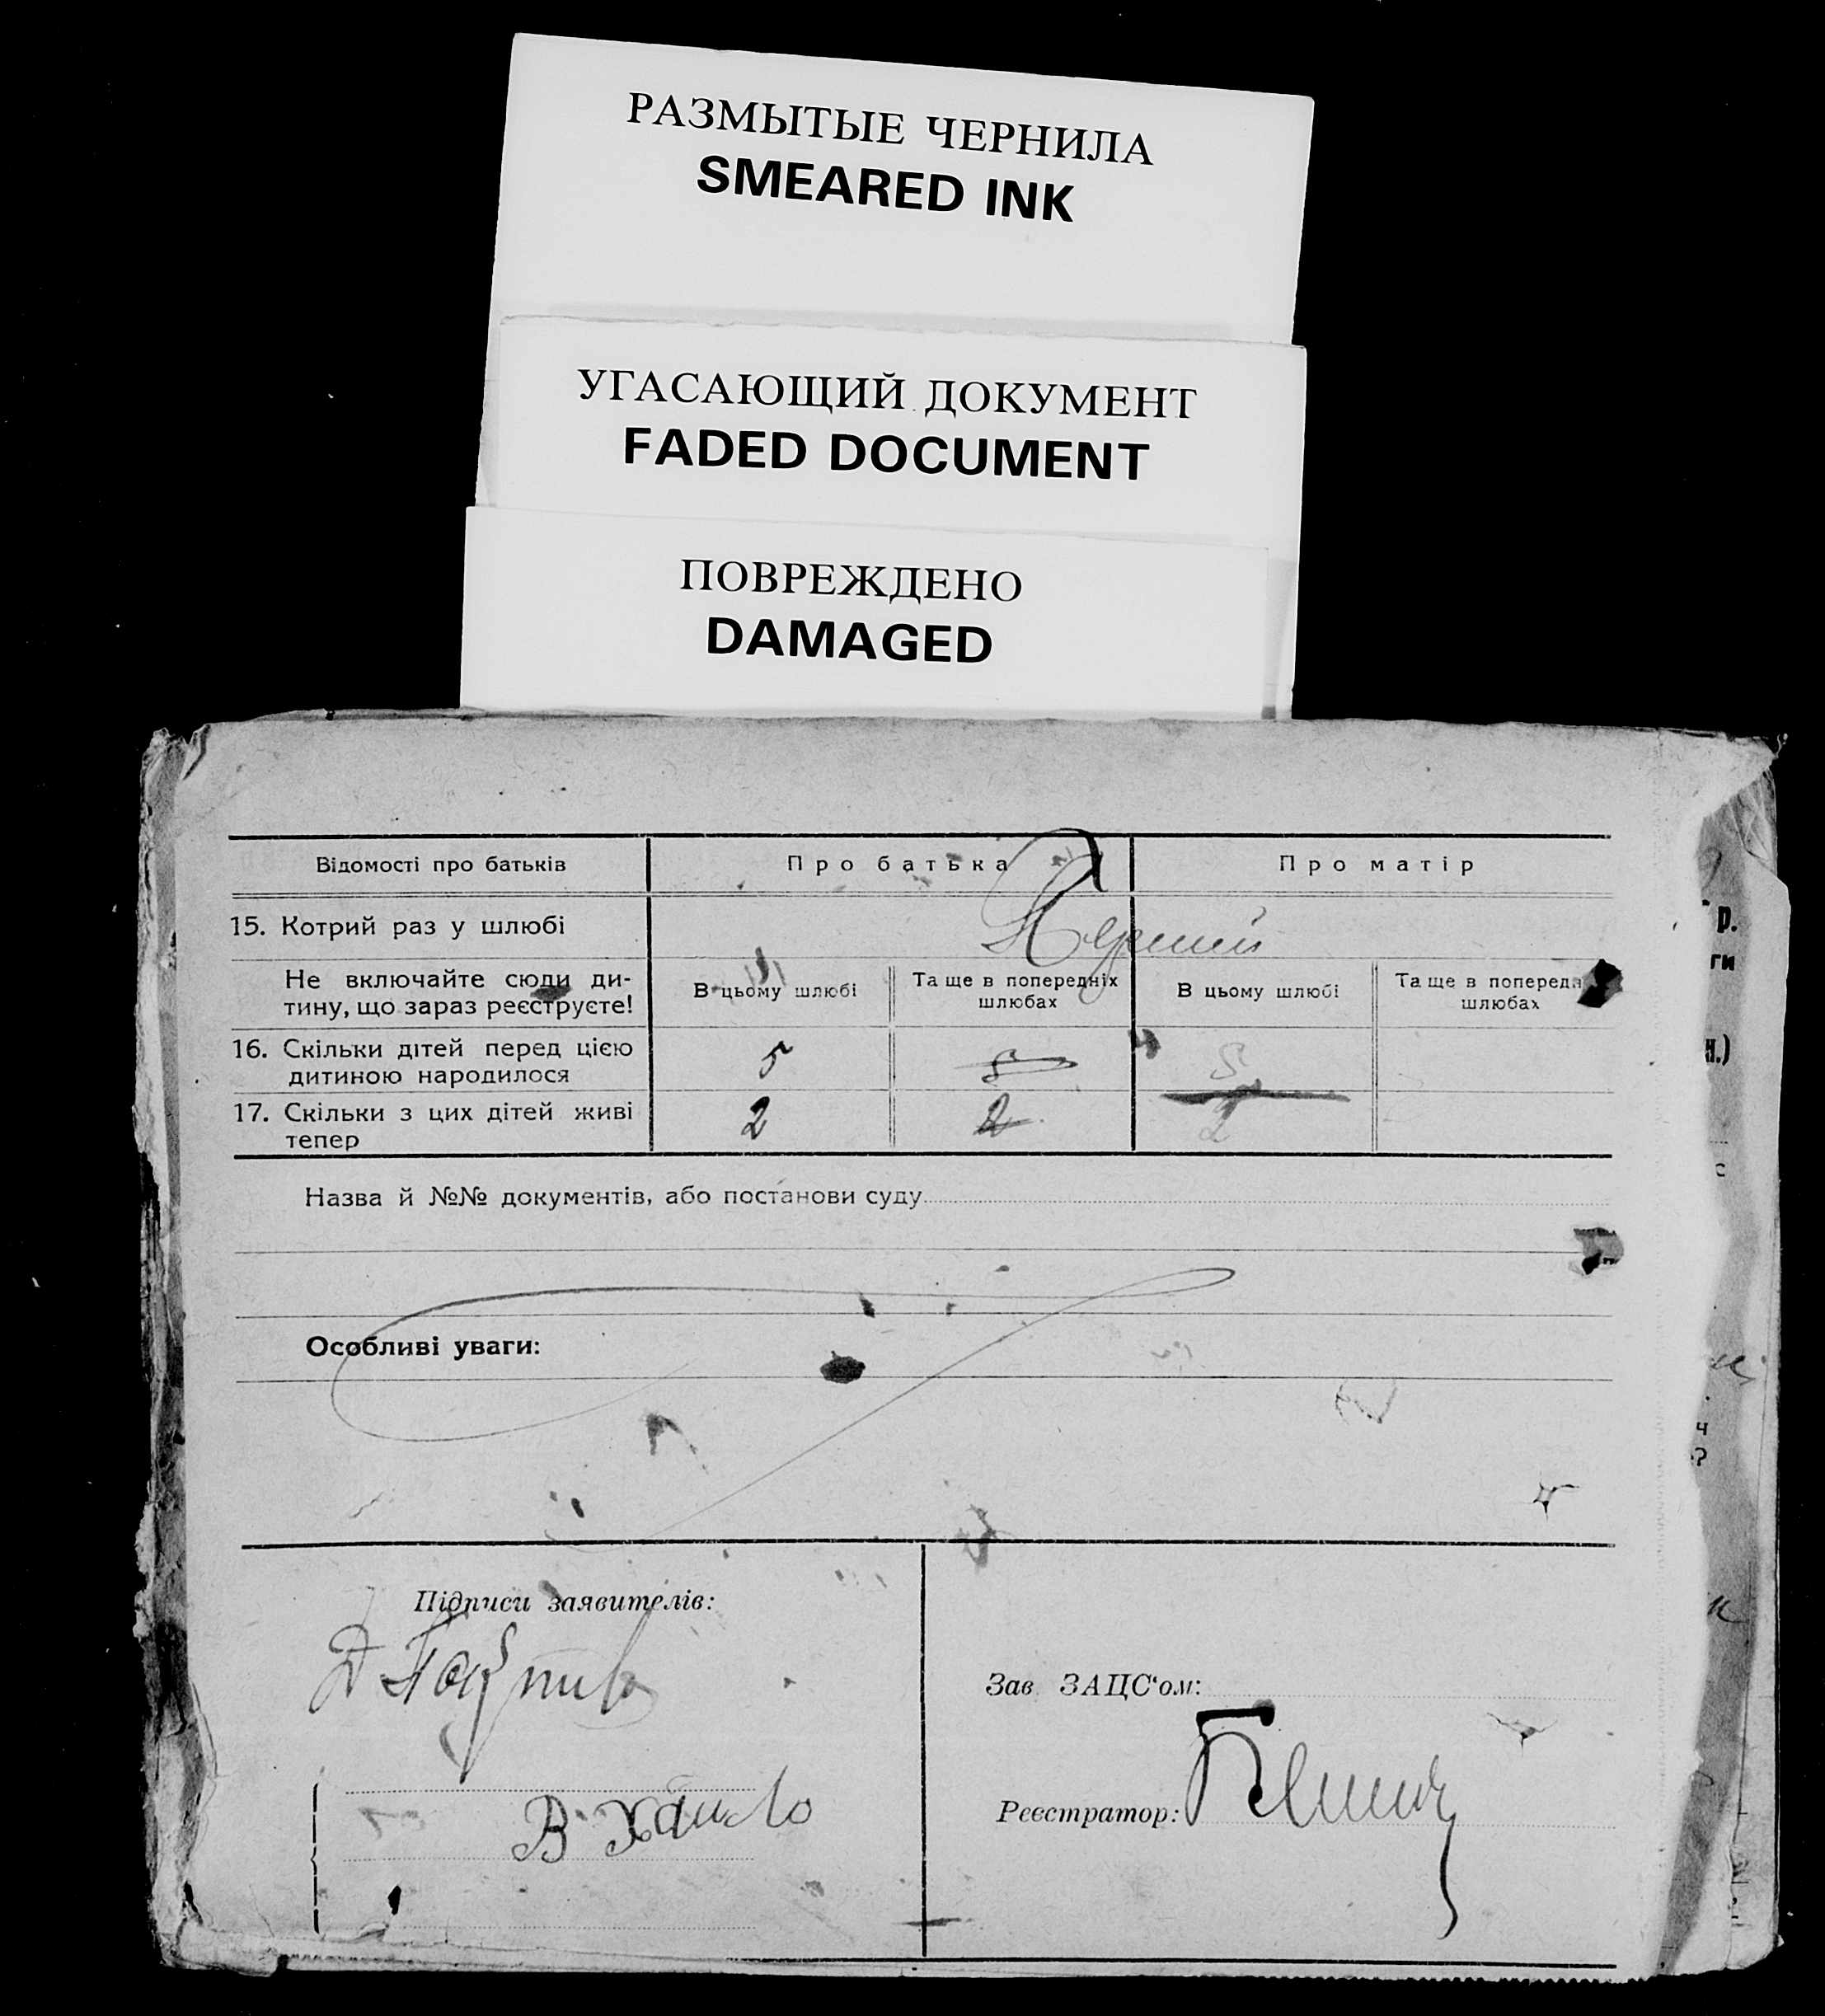 РАЗМЫТЫЕ ЧЕРНИЛА
SMEARED INK
УГАСАЮЩИЙ ДОКУМЕНТ
FADED DOCUMENT
ПОВРЕЖДЕНО
DAMAGED
Відомості про батьків Про батька Про матір
15. Котрий раз у шлюбі Перший
Не включайте сюди ди-
тину, що зараз реєструєте!
В цьому шлюбі
Та ще в попередніх
шлюбах
В цьому шлюбі
Та ще в попередн
шлюбах
16. Скільки дітей перед цією
дитиною народилося
5 5 5
17. Скільки з цих дітей живі
тепер
2 2 2
Назва й №№ документів, або постанови суду
Особливі уваги:
Підписи заявителів:
Д
В Хайло
Зав. ЗАЦС'ом:
Реєстратор:
р.
ги
н.)
с
ч
?